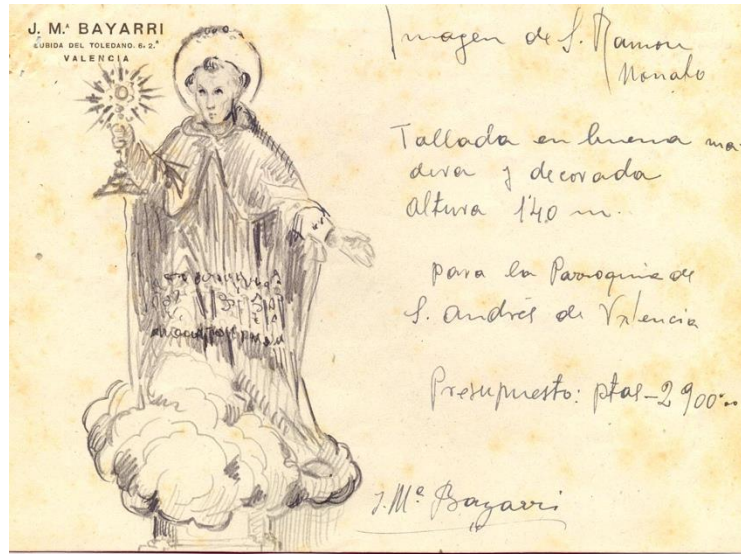 J. M.ª BAYARRI
SUBIDA DEL TOLEDANO. 6. 2.ª
VALENCIA
Imagen de S. Ramon
Nonato
Tallada en buena ma-
dera y decorada
altura 1'40 m.
para la Parroquia de
S. Andrés de Valencia
Presupuesto: ptas-2900'--
J. Mª Bayarri